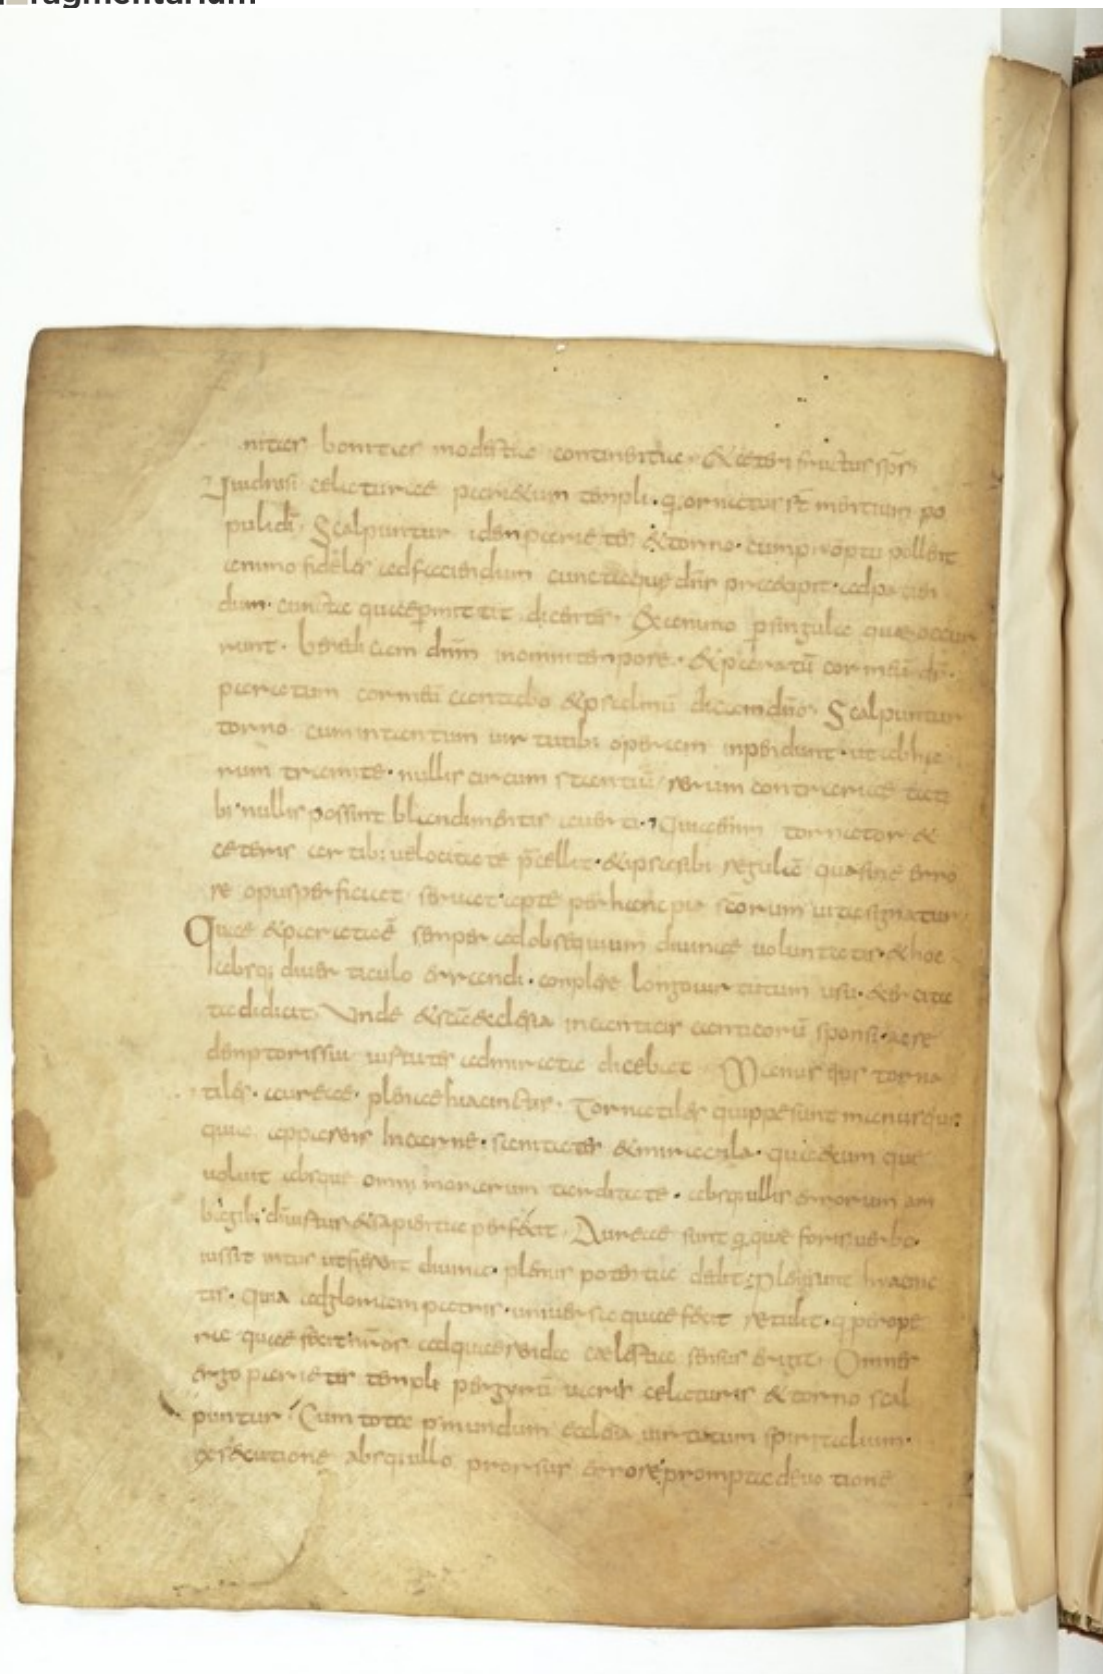 fragmentarium
nitas bonitas modestia continentia & ceteri fructus sp̄s
Quadrans celaturae parietum templi· q; ornatus st̄ mentium po
puli dī· Scalpuntur idem parietes & torno· cum promptu pollent
animo fideles ad faciendum cunctaque dn̄s praecepit· ad patien
dum· cuncta quae permittit dicentes· & animo p singula quae occur
runt· benedicam dn̄m in omni tempore· & paratū cor meū dš·
paratum cor meū cantabo & psalmū dicam dn̄o· Scalpuntur
torno cum intantum virtutibꝰ operam inpendunt· ut ab hac
rum tramite· nullis circumstantiū rerum contrarietati
bꝰ nullis possint blandimentis averti· Quia enim tornatura &
ceteris artibꝰ velocitate p̄cellit· & ipsa sibi regulā qua sine erro
re opus perficiat servat· apte per hanc pia scōrum vita signatur·
Quae & parata ē semper ad obsequium divinae voluntatis· & hoc
absq; diverticulo errandi· conplere longo virtutum usu· exercita
ta didicit· Unde & scā ecclesia in canticis canticorū sponsi ac re
demptoris sui virtutes admirata dicebat· Manus eius torna
tiles· aureae· plenae hiacinctus· Tornatiles quippe sunt manus eius
quia apparens in carne· sanitates & miracula· quaecumque
voluit absque omni morarum tarditate· absq; ullis errorum am
bagibꝰ dī virtus & sapientia perfecit· Aureae sunt q; quae foris verbo
iussit intus ut fierent divinae· plenus potentiae dedit· Plenę sunt hyacinc
tis· quia ad gloriam patris· universa quae fecit retulit· q; per ope
ra quae fecit nr̄os ad quaerenda caelestia sensus erigit· Omnes
ergo parietes templi per gyrū variis celaturis & torno scal
puntur· Cum tota p mundum ecclesia virtutum spiritalium·
exsecutione absq; ullo prorsus errore prompta devotione